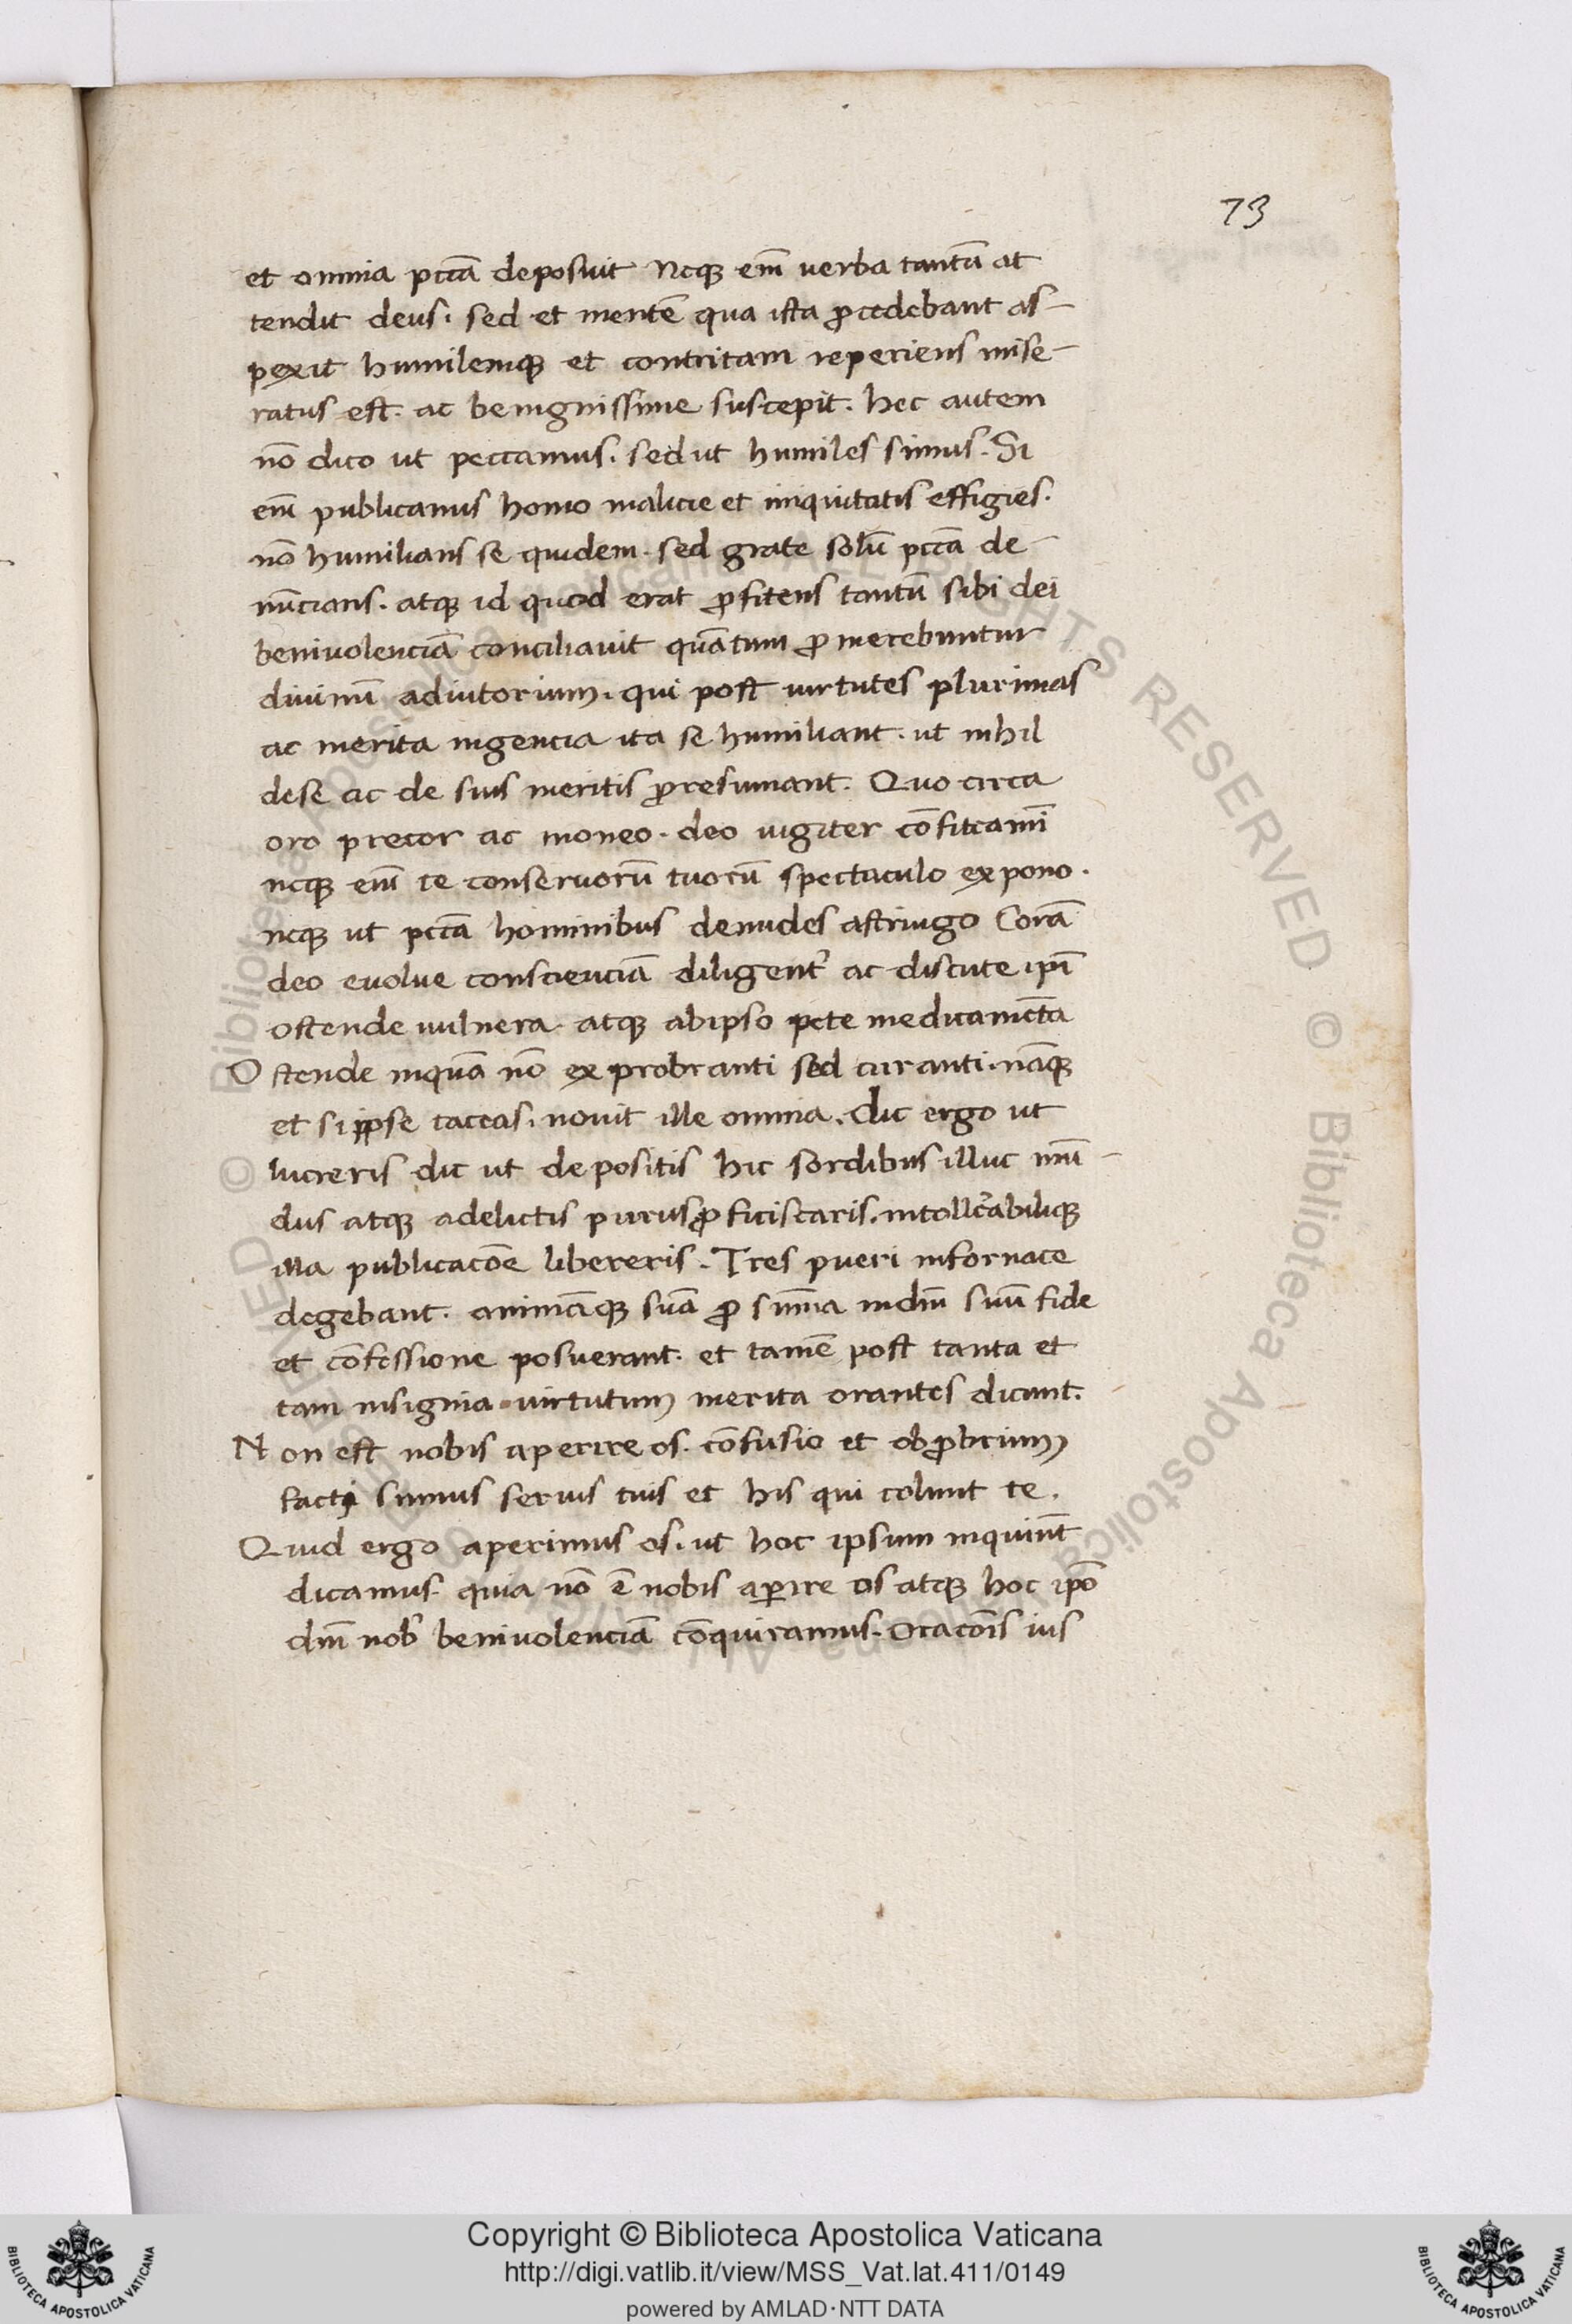 73
et omnia pctã deposuit Neq̃ em̃ uerba tantũ at
tendit deus. sed et mentẽ qua ista ꝓcedebant as-
pexit humilemq̃ et contritam reperiens mise-
ratus est. ac benignissime suscepit. hec autem
nõ dico ut peccamus. sed ut humiles simus. Si
em̃ publicanus homo malicie et iniquitatis effigies.
nõ humilians se quidem. sed grate solũ pctã de-
nũcians. atq̃ id quod erat ꝓfitens tantũ sibi dei
beniuolenciã conciliauit quãtum ꝓmerebuntur
diuinũ adiutorium. qui post uirtutes plurimas
ac merita ingencia ita se humiliant. ut nihil
dese ac de suis meritis p̃resumant. Quo circa
oro precor ac moneo. deo iugiter cõfiteamĩ
neq̃ em̃ te conseruorũ tuorũ spectaculo expono.
neq̃ ut pctã hominibus denudes astringo Corã
deo euolue conscienciã diligentˀ ac discute ipĩ
ostende uulnera. atq̃ abipso pete medicamẽta
Ostende inquã nõ exprobranti sed curanti. nãq̃
et si ipse taceas. nouit ille omnia. dic ergo ut
lucreris dic ut depositis hic sordibus illuc mũ-
dus atq̃ adelictis purus ꝓficiscaris. intollerabiliq̃
illa publicacõe libereris. Tres pueri infornace
degebant. animãq̃ suã ꝓ sum̃a indm̃ suũ fide
et cõfessione posuerant. et tamẽ post tanta et
tam insignia uirtutum merita orantes dicunt.
Non est nobis aperire os. cõfusio et obꝓbrium
facti sumus seruis tuis et his qui colunt te.
Quid ergo aperimus os. ut hoc ipsum inquiũt
dicamus. quia nõ ẽ nobis aꝑire os atq̃ hoc ipõ
dm̃ nobˀ beniuolenciã cõquiramus. Oracõis ius
Copyright © Biblioteca Apostolica Vaticana
http://digi.vatlib.it/view/MSS_Vat.lat.411/0149
powered by AMLAD·NTT DATA
BIBLIOTECA APOSTOLICA VATICANA
BIBLIOTECA APOSTOLICA VATICANA